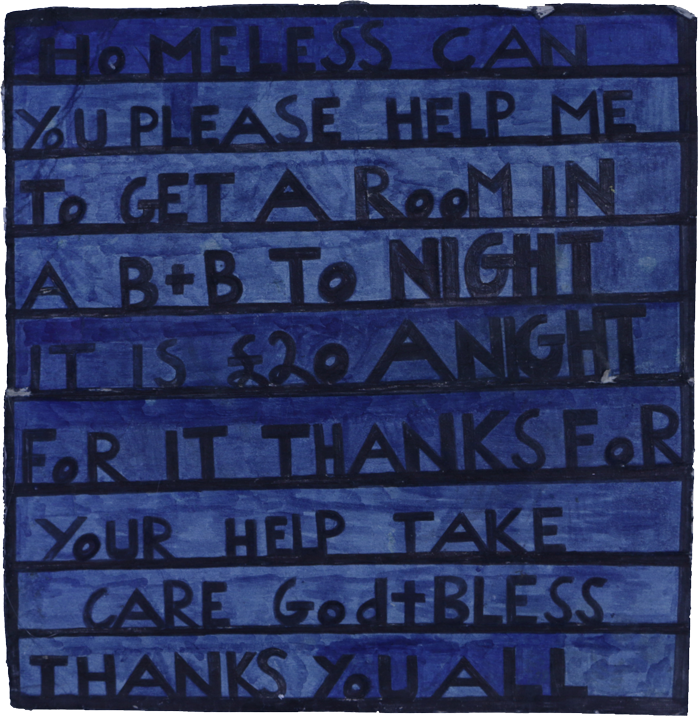 HoMELESS CAN
YoU PLEASE HELP ME
To GET A RooM IN
A B+B To NIGHT
IT IS £20 A NIGHT
FoR IT THANKS FoR
YoUR HELP TAKE
CARE God+BLESS
THANKS YoU ALL